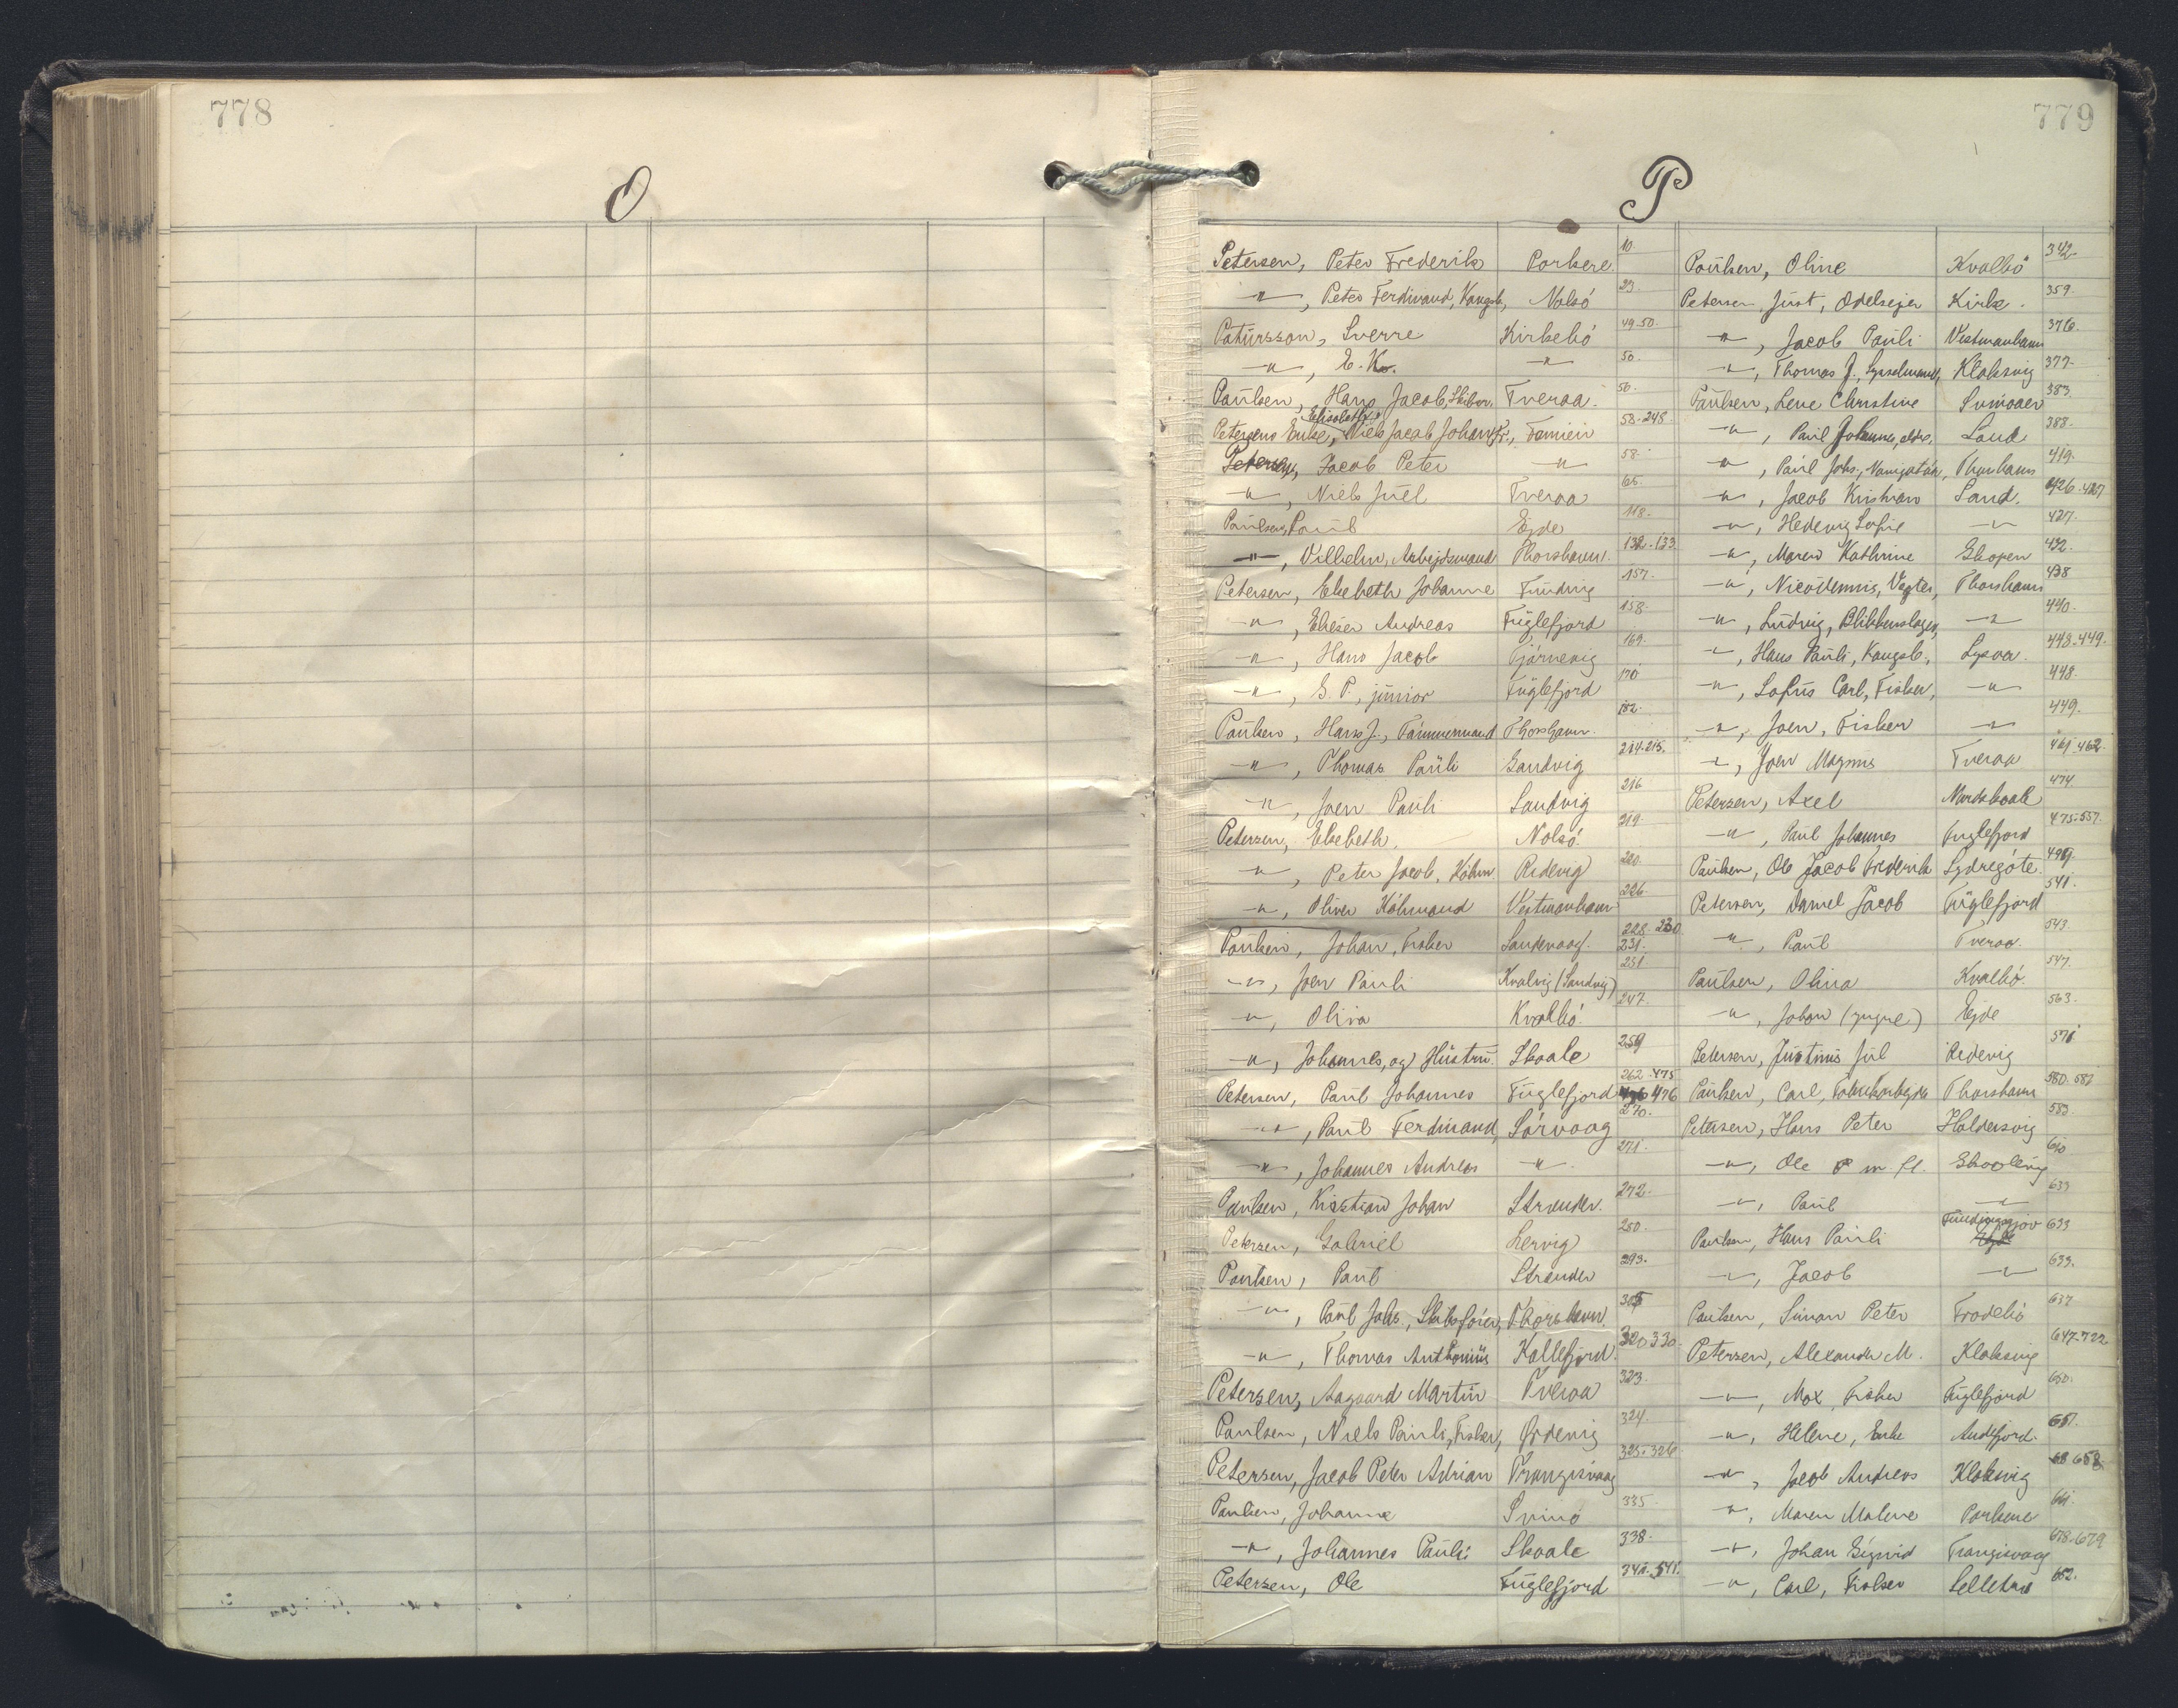 778
O
779
P
Petersen, Peter Frederik Porkere. 10.
—"—, Peter Ferdinand, Kongsb., Nolsö 23.
Patursson, Sverre Kirkebö 49-50.
—"—, E. K. —"— 50.
Paulsen, Hans Jacob, Skiber. Tveraa. 50.
Petersens Enke, Elisabeth, Niels Jacob Johan Famien 53-248.
Petersen, Jacob Peter —"— 58.
—"—, Niels Juel Tveraa 65.
Paulsen, Paul Ejde 118.
—"—, Vilhelm, Arbejdsmand Thorshavn. 132-133
Petersen, Elsebeth Johanne Funding 157.
—"—, Elieser Andreas Fuglefjord 158.
—"—, Hans Jacob Tjörnevig 169.
—"—, S. P., junior Fuglefjord 170
Paulsen, Hans J., Tömmermand Thorshavn. 182.
—"—, Thomas Pauli Sandvig 214-215.
—"—, Joen Pauli Sandvig 216
Petersen, Elsebeth, Nolsö. 219.
—"—, Peter Jacob, Köbm Ridevig 220.
—"—, Oliver Köbmand Vestmanhavn 226.
Paulsen, Johan, Fisker Sandevaag. 228. 230 231.
—"—, Joen Pauli Kvalvig (Sandvig) 231
—"—, Oliva Kvalbö. 247.
—"—, Johannes, og Hustru. Skaale 259
Petersen, Paul Johannes Fuglefjord 262-475 476
—"—, Paul Ferdinand, Sörvaag 270.
—"—, Johannes Andreas —"— 271.
Paulsen, Kristian Johan Strender. 272.
Petersen, Gabriel Lervig 280.
Paulsen, Paul Strender 293.
—"—, Paul Johs., Skibsförer, Thorshavn. 305
—"—, Thomas Anthonius Kollefjord. 320 330.
Petersen, Aagaard Martin Tveraa 323.
Paulsen, Niels Pauli, Fisker, Ördevig 324.
Petersen, Jacob Peter Adrian Trangisvaag 325-326.
Paulsen, Johanne Svinö 335.
—"—, Johannes Pauli Skaale 338.
Petersen, Ole Fuglefjord 341. 541.
Paulsen, Oline Kvalbö 342.
Petersen, Just, Odelsejer Kirke. 359.
—"—, Jacob Pauli Vestmanhavn 376.
—"—, Thomas J., Sysselmand, Klaksvig 377.
Paulsen, Lene Christine Sumöaer 383.
—"—, Paul Johannes, ældre. Sand 388.
—"—, Paul Johs., Navigatör, Thorshavn 419.
—"—, Jacob Kristian Sand. 426-427
—"—, Hedevig Sofie —"— 427.
—"—, Maren Kathrine Skopen 432.
—"—, Nicodemus, Vægter, Thorshavn 438
—"—, Ludvig, Blikkenslager, —"— 440.
—"—, Hans Pauli, Kongsb., Lysaa. 448-449.
—"—, Sofus Carl, Fisker, —"— 448.
—"—, Joen, Fisker —"— 449.
—"—, Joen Magnus Tveraa 461-462.
Petersen, Axel Nordskaale 474.
—"—, Paul Johannes Fuglefjord 475-557.
Paulsen, Ole Jacob Frederik Sydregöte. 499.
Petersen, Daniel Jacob Fuglefjord 541.
—"—, Paul Tveraa. 543.
Paulsen, Olina Kvalbö. 547.
—"—, Johan (yngre) Ejde 563.
Petersen, Justinus Jul Ridevig 571
Paulsen, Carl, Fabriksarbejder Thorshavn 580-581
Petersen, Hans Peter Haldersvig 583.
—"—, Ole P m. fl. Skaalevig 610
—"—, Paul —"— 633
Paulsen, Hans Pauli Fundingsgjov 633
—"—, Jacob —"— 633.
Paulsen, Simon Peter Frodebö 637
Petersen, Alexander M. Klaksvig 647-722
—"—, Max, Fisker Fuglefjord 650.
—"—, Helene, Enke Andefjord. 651.
—"—, Jacob Andreas Klaksvig 658
—"—, Maren Malene Porkere 661.
—"—, Johan Sigurd Trangisvaag 678-679
—"—, Carl, Fisker Selletræ 682.